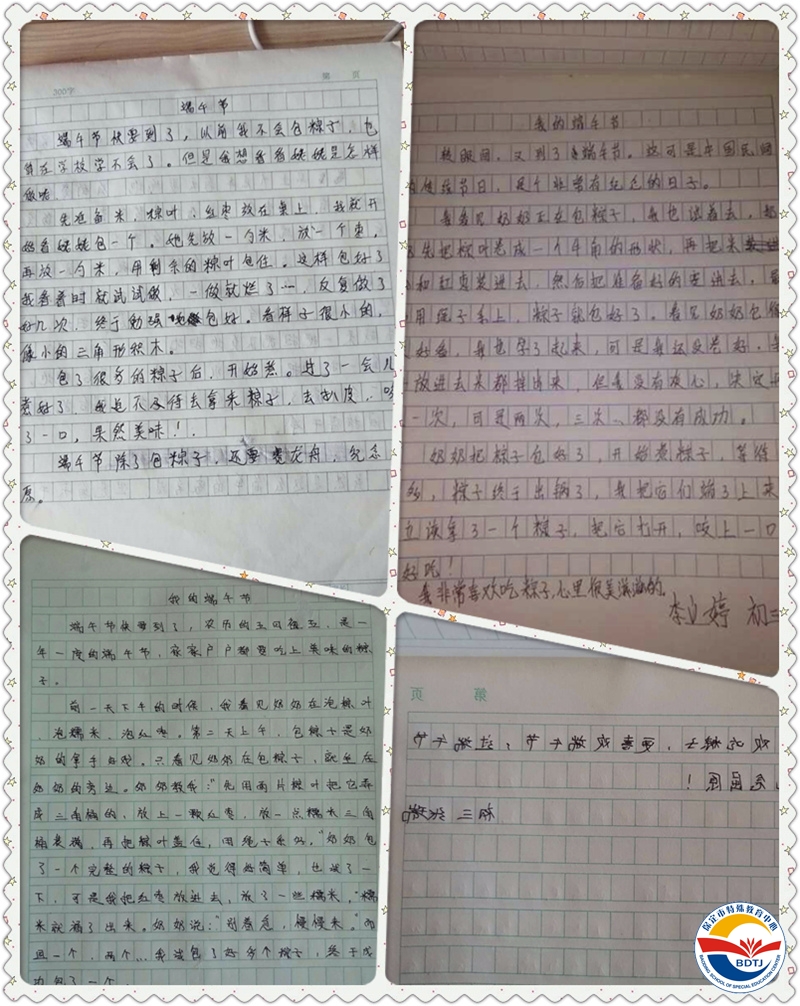 300字 第 页
端午节
端午节快要到了,以前我不会包粽子,也
曾在学校学不会了。但是我想看看姥姥是怎样
做啥
先准备米,粽叶,红枣放在桌上,我就开
始看姥姥包一个。她先放一勺米,放一个枣,
再放一勺米,用剩余的粽叶包住。这样包好了
我看着时就试试做,一做就烂了…,反复做了
好几次,终于勉强包好。看样子很小的,
像小的三角形积木。
包了很多的粽子后,开始煮。过了一会儿
煮好了,我迫不及待去拿来粽子,去扒皮,咬
了一口,果然美味!
端午节除了包粽子,还要赛龙舟,纪念
原。
我的端午节
转眼间,又到了端午节。这可是中国民间
的传统节日,是个非常有纪念的日子。
我看见奶奶正在包粽子,我也试着去,奶
先把粽叶卷成一个牛角的形状,再把米
和红枣装进去,然后把准备好的枣进去,
用绳子系上,粽子就包好了。看见奶奶包
好看,我也学了起来,可是我还没卷好,
放进去米都掉出来,但我没有灰心,决定
一次,可是两次,三次、都没有成功。
奶奶把粽子包好了,开始煮粽子,等
,粽子终于出锅了,我把它们端了上来
拿了一个粽子,把它打开,咬上一口
好吃!
我非常喜欢吃粽子,心里很美滋滋的。
李 婷 初三
我的端午节
端午节快要到了,农历的五月初五,是一
年一度的端午节,家家户户都要吃上美味的粽
子。
前一天下午的时候,我看见奶奶在泡粽叶
、泡糯米、泡红枣。第二天上午,包粽子是奶
奶的拿手好戏。只看见奶奶在包粽子,就坐在
奶奶的旁边。奶奶教我:“先用两片粽叶把它弄
成三角桶的,放上一颗红枣,放一点糯米三角
桶裹满,再把粽叶盖住,用绳子系好。”奶奶包
了一个完整的粽子,我觉得好简单,也试了一
下,可是我把红枣放进去,放了一些糯米,“糯
米就漏了出来。奶奶说:“别着急,慢慢来。”
一个,两个…我试包了好多个粽子,终于成
功包了一个
第 页
欢吃粽子,更喜欢端午节,过端午节
团圆!
初三
保定市特殊教育中心
BDTJ
BAODING SCHOOL OF SPECIAL EDUCATION CENTER